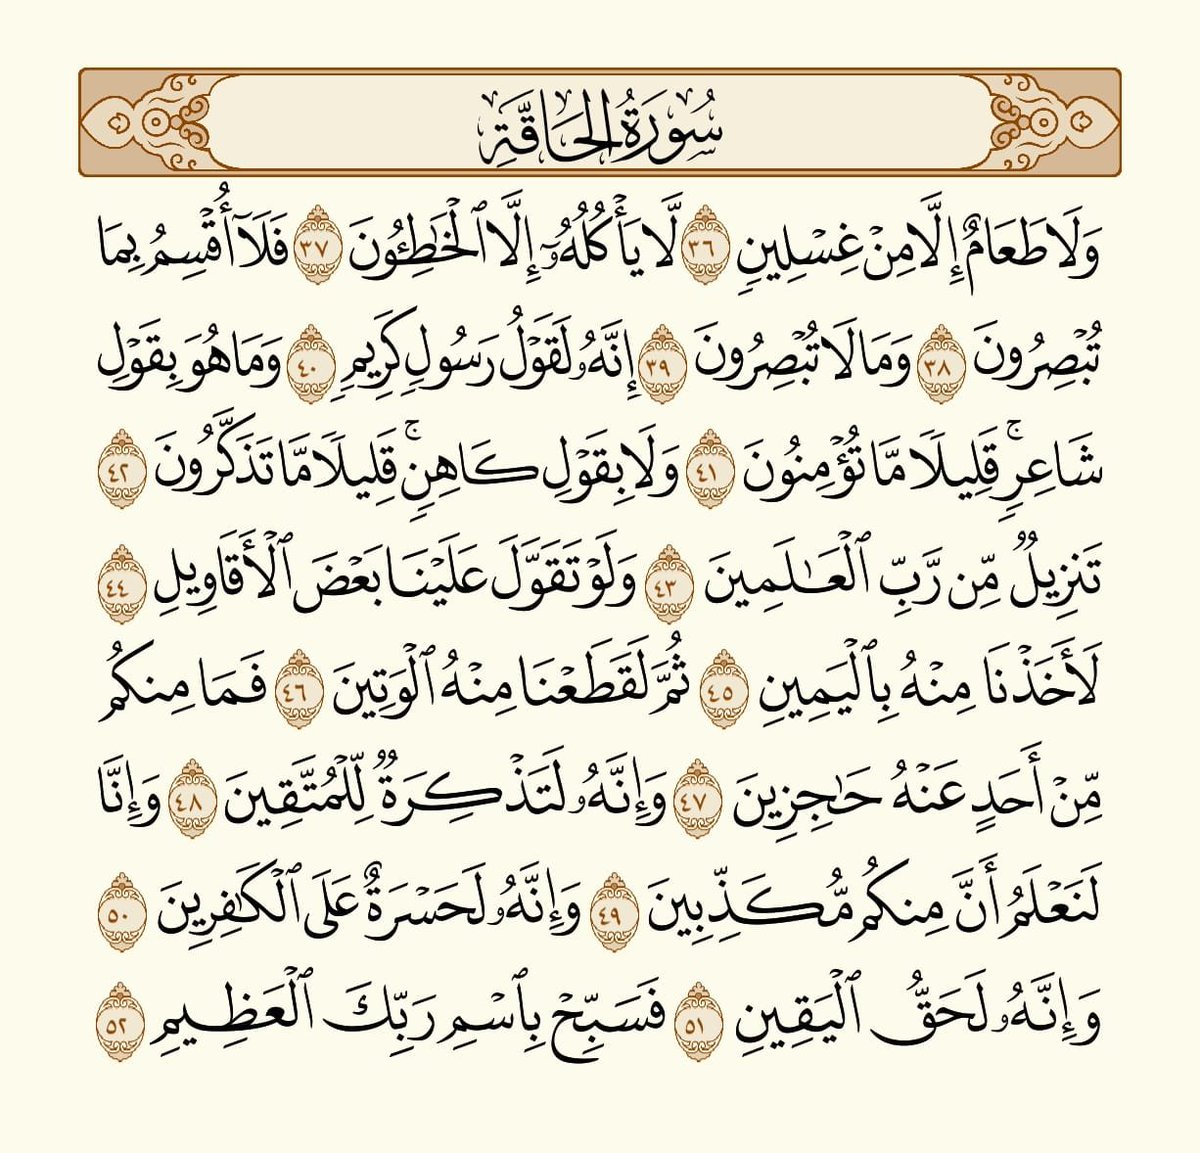 سُورَةُ الحَاقَّةِ
وَلَا طَعَامٌ إِلَّا مِنْ غِسْلِينٍ ٣٦ لَّا يَأْكُلُهُۥٓ إِلَّا ٱلْخَـٰطِـُٔونَ ٣٧ فَلَآ أُقْسِمُ بِمَا
تُبْصِرُونَ ٣٨ وَمَا لَا تُبْصِرُونَ ٣٩ إِنَّهُۥ لَقَوْلُ رَسُولٍ كَرِيمٍ ٤٠ وَمَا هُوَ بِقَوْلِ
شَاعِرٍ ۚ قَلِيلًا مَّا تُؤْمِنُونَ ٤١ وَلَا بِقَوْلِ كَاهِنٍ ۚ قَلِيلًا مَّا تَذَكَّرُونَ ٤٢
تَنزِيلٌ مِّن رَّبِّ ٱلْعَـٰلَمِينَ ٤٣ وَلَوْ تَقَوَّلَ عَلَيْنَا بَعْضَ ٱلْأَقَاوِيلِ ٤٤
لَأَخَذْنَا مِنْهُ بِٱلْيَمِينِ ٤٥ ثُمَّ لَقَطَعْنَا مِنْهُ ٱلْوَتِينَ ٤٦ فَمَا مِنكُم
مِّنْ أَحَدٍ عَنْهُ حَـٰجِزِينَ ٤٧ وَإِنَّهُۥ لَتَذْكِرَةٌ لِّلْمُتَّقِينَ ٤٨ وَإِنَّا
لَنَعْلَمُ أَنَّ مِنكُم مُّكَذِّبِينَ ٤٩ وَإِنَّهُۥ لَحَسْرَةٌ عَلَى ٱلْكَـٰفِرِينَ ٥٠
وَإِنَّهُۥ لَحَقُّ ٱلْيَقِينِ ٥١ فَسَبِّحْ بِٱسْمِ رَبِّكَ ٱلْعَظِيمِ ٥٢